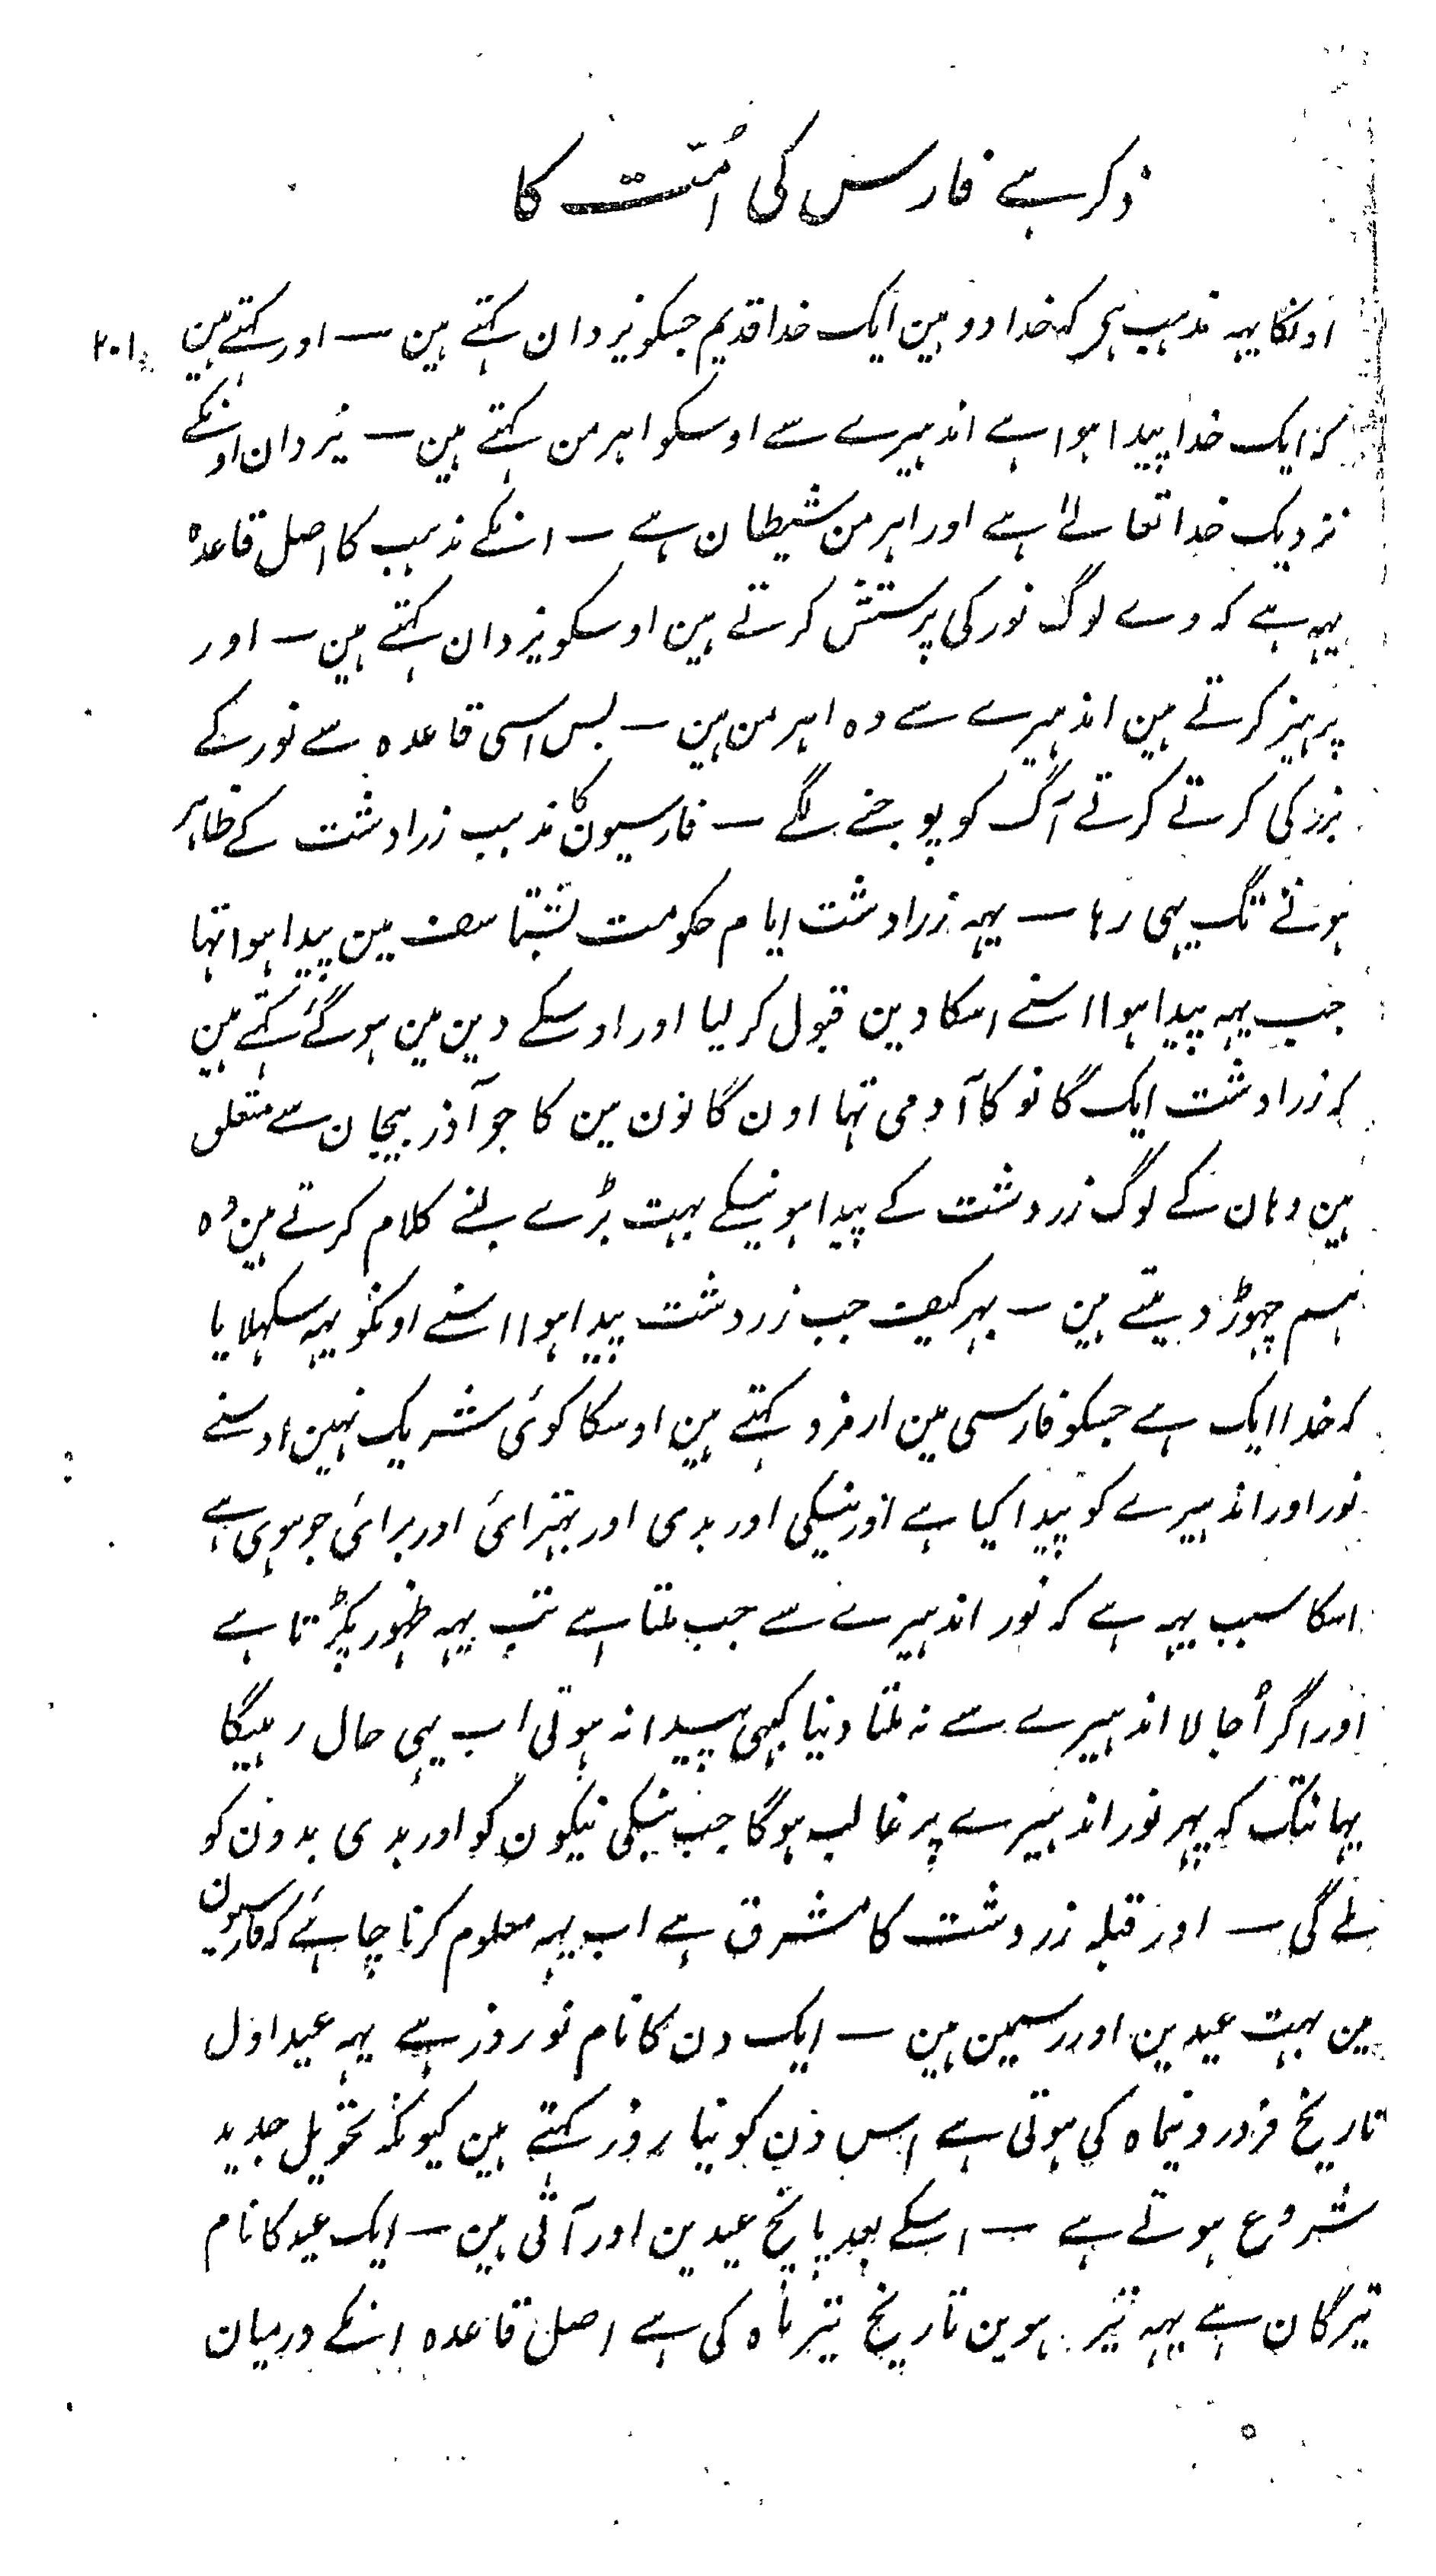 ذکر ہے فارس کی اُمّت کا
اونکا یہہ مذہب ہی کہ خدا دو ہین ایک خدا قدیم جسکو یزدان کہتے ہین — اور کہتے ہین
۲۰۱
کہ ایک خدا پیدا ہوا ہے اندہیرے سے اوسکو اہرمن کہتے ہین — یزدان اونکے
نزدیک خدا تعالےٰ ہے اور اہرمن شیطان ہے — انکے مذہب کا اصل قاعدہ
یہہ ہے کہ وے لوگ نور کی پرستش کرتے ہین اوسکو یزدان کہتے ہین — اور
پرہیز کرتے ہین اندہیرے سے وہ اہرمن ہین — بس اسی قاعدہ سے نور کے
بزرگی کرتے کرتے آگ کو پوجنے لگے — فارسیون کا مذہب زرادشت کے ظاہر
ہونے تک یہی رہا — یہہ زرادشت ایام حکومت بشتاسف مین پیدا ہوا تہا
جب یہہ پیدا ہوا اسنے اسکا دین قبول کر لیا اور اوسکے دین مین ہو گئے کہتے ہین
کہ زرادشت ایک گانو کا آدمی تہا اون گانون مین کا جو آذربیجان سے متعلق
ہین وہان کے لوگ زردشت کے پیدا ہونیکے بہت بڑے بنے کلام کرتے ہین وہ
ہم چہوڑ دیتے ہین — بہر کیف جب زردشت پیدا ہوا اسنے اونکو یہہ سکہلایا
کہ خدا ایک ہے جسکو فارسی مین ارمزد کہتے ہین اوسکا کوئی شریک نہین اوسنے
نور اور اندہیرے کو پیدا کیا ہے اور نیکی اور بدی اور بہترائی اور برائی جو ہوی ہے
اسکا سبب یہہ ہے کہ نور اندہیرے سے جب ملتا ہے تب یہہ ظہور پکڑتا ہے
اور اگر اُجالا اندہیرے سے نہ ملتا دنیا کبہی پیدا نہ ہوتی اب یہی حال رہیگا
یہانتک کہ پہر نور اندہیرے پر غالب ہوگا جب نیکی نیکون کو اور بدی بدون کو
ملے گی — اور قبلہ زردشت کا مشرق ہے اب یہہ معلوم کرنا چاہئے کہ فارسیون
مین بہت عیدین اور رسمین ہین — ایک دن کا نام نوروز ہے یہہ عید اول
تاریخ فروردینماہ کی ہوتی ہے اس دن کو نیا روز کہتے ہین کیونکہ تحویل جدید
شروع ہوتے ہے — اسکے بعد پانچ عیدین اور آتی ہین — ایک عید کا نام
تیرگان ہے یہہ تیرہوین تاریخ تیر ماہ کی ہے اصل قاعدہ انکے درمیان